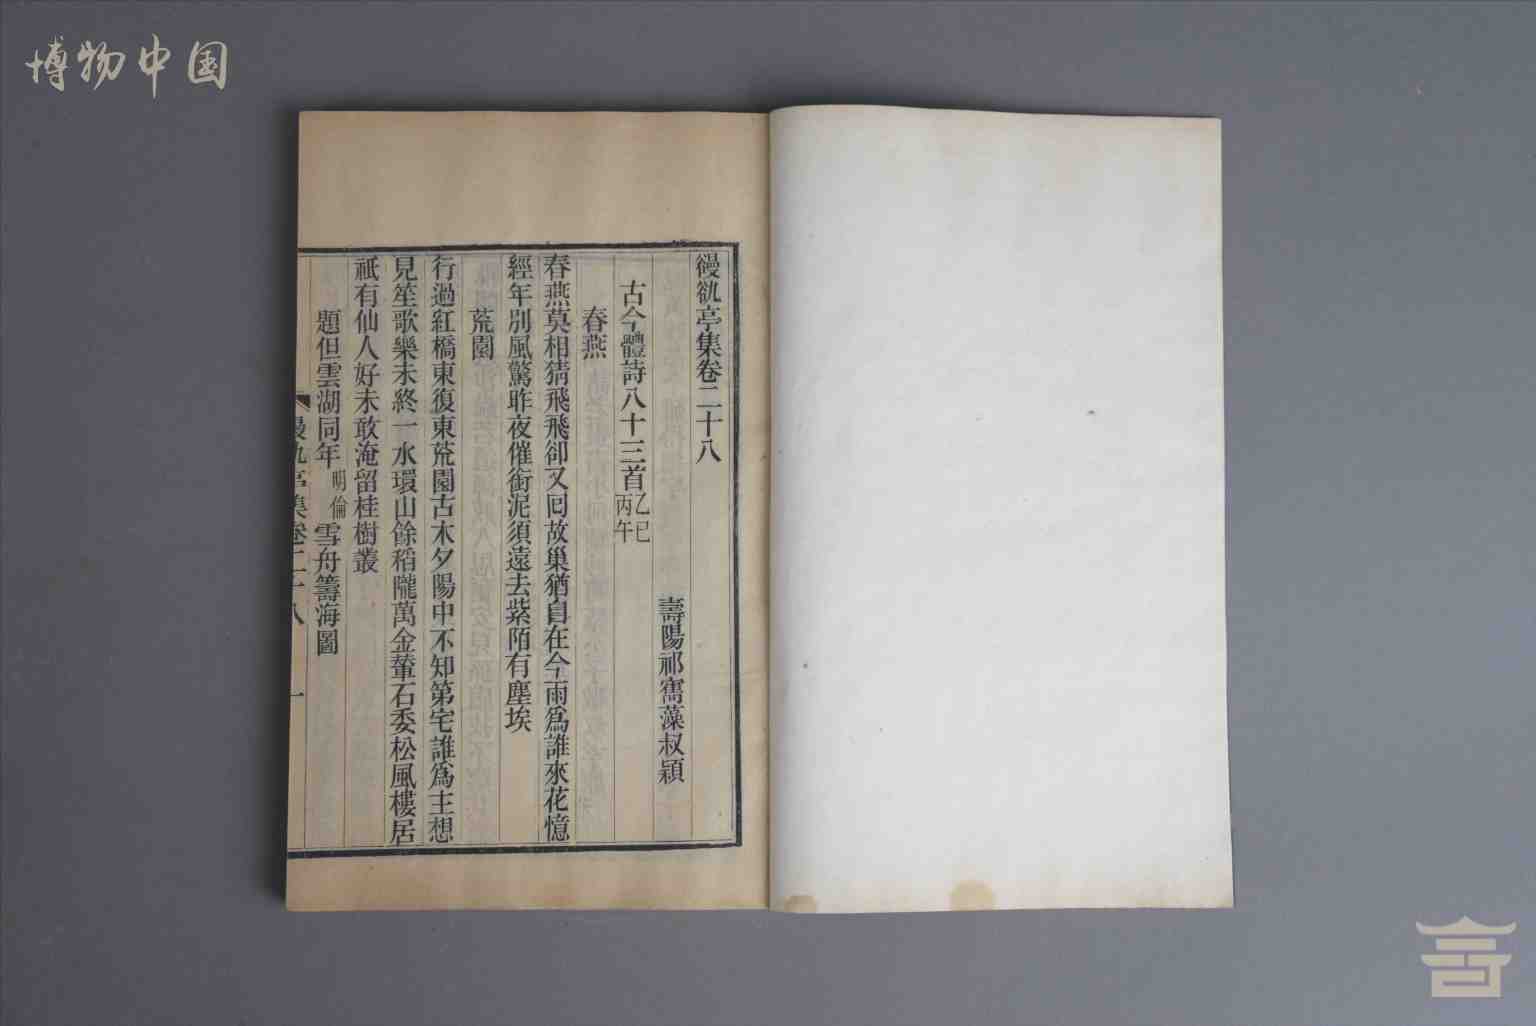 博物中国
𩜙𩚬亭集卷二十八
壽陽祁寯藻叔穎
古今體詩八十三首乙巳丙午
春燕
春燕莫相猜飛飛卻又囘故巢猶自在今雨爲誰來花憶
經年別風驚昨夜催銜泥須遠去紫陌有塵埃
荒園
行過紅橋東復東荒園古木夕陽中不知第宅誰爲主想
見笙歌樂未終一水環山餘稻隴萬金輦石委松風樓居
祇有仙人好未敢淹留桂樹叢
題但雲湖同年明倫雪舟籌海圖
亭集卷二十八 一